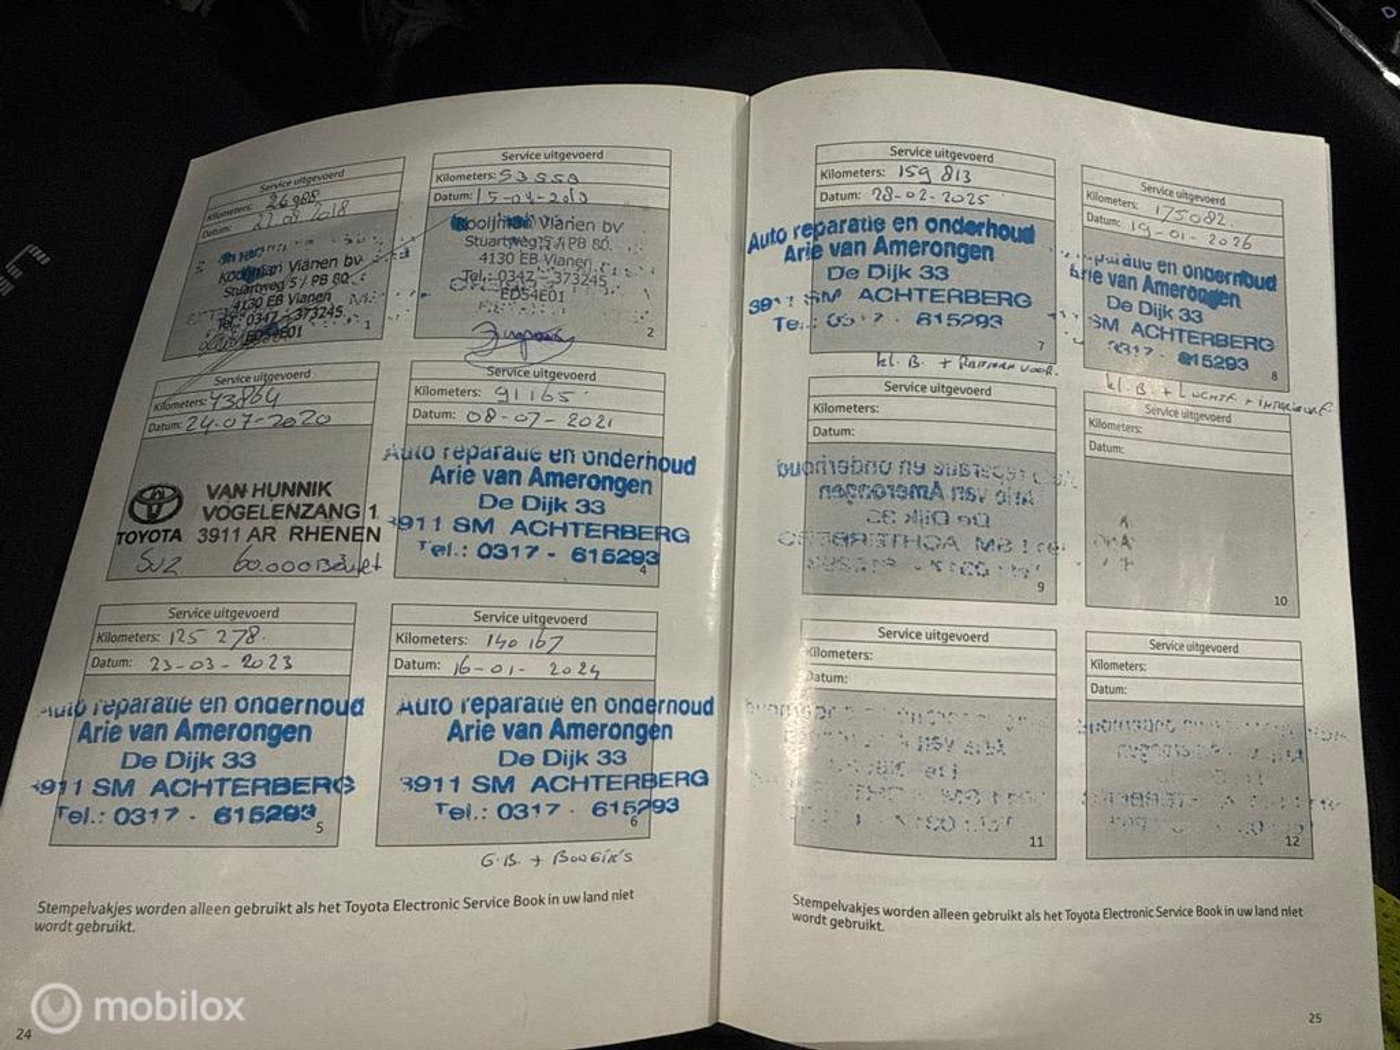 Service uitgevoerd
Kilometers: 26988
Datum: 27.08.2018
Kooijman Vianen bv
Stuartweg 5 / PB 80
4130 EB Vianen
Tel.: 0347 - 373245
ED54E01
1
Service uitgevoerd
Kilometers: 53550
Datum: 15-04-2019
Kooijman Vianen bv
Stuartweg 5 / PB 80.
4130 EB Vianen
Tel.: 0347 - 373245
ED54E01
2
Service uitgevoerd
Kilometers: 73864
Datum: 24-07-2020
VAN HUNNIK
VOGELENZANG 1
TOYOTA 3911 AR RHENEN
60.000 Beurt
Service uitgevoerd
Kilometers: 91165
Datum: 08-07-2021
Auto reparatie en onderhoud
Arie van Amerongen
De Dijk 33
3911 SM ACHTERBERG
Tel.: 0317 - 615293
4
Service uitgevoerd
Kilometers: 125 278.
Datum: 23-03-2023
Auto reparatie en onderhoud
Arie van Amerongen
De Dijk 33
3911 SM ACHTERBERG
Tel.: 0317 - 615293
5
Service uitgevoerd
Kilometers: 140 167
Datum: 16-01-2024
Auto reparatie en onderhoud
Arie van Amerongen
De Dijk 33
3911 SM ACHTERBERG
Tel.: 0317 - 615293
6
G.B. + Bougie's
Stempelvakjes worden alleen gebruikt als het Toyota Electronic Service Book in uw land niet
wordt gebruikt.
24
Service uitgevoerd
Kilometers: 159 813
Datum: 28-02-2025
Auto reparatie en onderhoud
Arie van Amerongen
De Dijk 33
3911 SM ACHTERBERG
Tel.: 0317 - 615293
7
kl. B. + Remmen voor.
Service uitgevoerd
Kilometers: 175082.
Datum: 19-01-2026
en onderhoud
Arie van Amerongen
De Dijk 33
SM ACHTERBERG
0317 - 615293
8
kl. B + Luchtf + interieurf
Service uitgevoerd
Kilometers:
Datum:
9
Service uitgevoerd
Kilometers:
Datum:
10
Service uitgevoerd
Kilometers:
Datum:
11
Service uitgevoerd
Kilometers:
Datum:
12
Stempelvakjes worden alleen gebruikt als het Toyota Electronic Service Book in uw land niet
wordt gebruikt.
25
mobilox